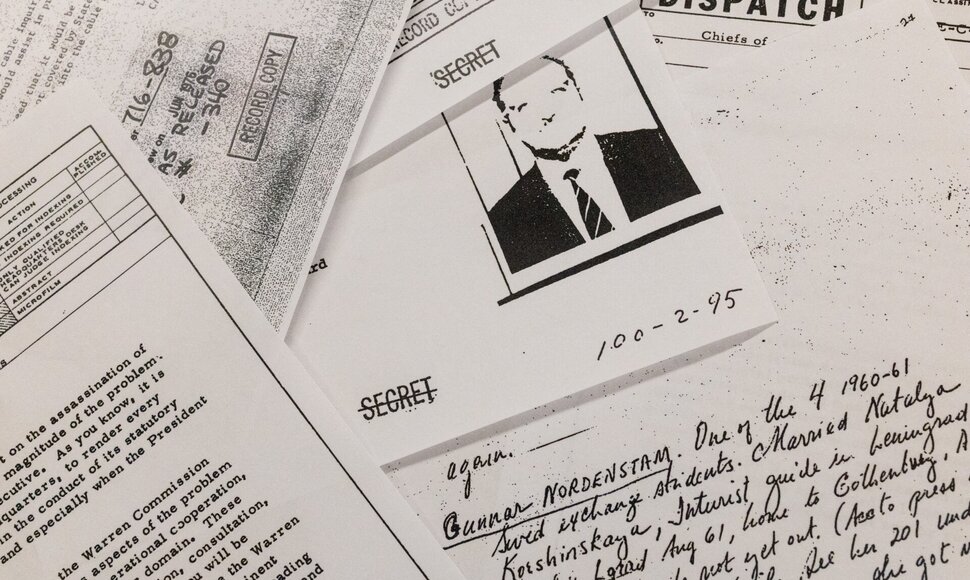 cable inquir
would assist in p
sed that it would be
ot covered by State
into the cable
716-838
JUN 1976
AS RELEASED
-340
RECORD COPY
RECORD COPY
SECRET
DISPATCH
TO
Chiefs of
rd
100-2-95
SECRET
OCESSING
ACTION
ACCOM-
PLISHED
KED FOR INDEXING
INDEXING REQUIRED
ONLY QUALIFIED
HEADQUARTERS DESK
CAN JUDGE INDEXING
ABSTRACT
MICROFILM
t on the assassination of
magnitude of the problem.
cutive. As you know, it is
quarters, to render every
in the conduct of its statutory
and especially when the President
the Warren Commission
aspects of the problem
erational cooperation,
domain. These
tion, consultation,
ou will be
e the Warren
inent
ading
and
again.
Gunnar NORDENSTAM. One of the 4 1960-61
Swed exchange students. Married Natalya
Koshinskaya, Inturist guide in Leningrad
grad Aug 61, home to Gothenburg, A
not get out. (Acc to press
See her 201 und
she got